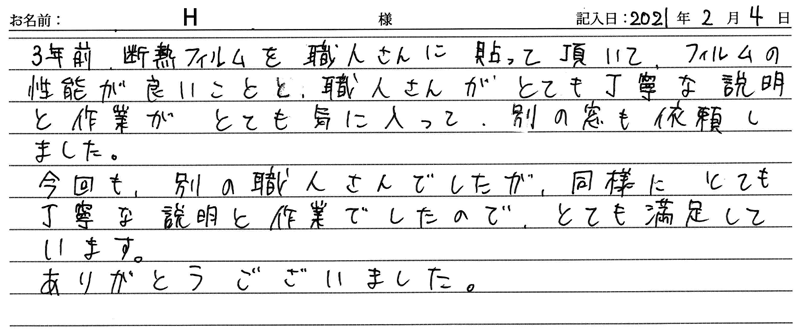 お名前： H 様 記入日：2021年 2月 4日
3年前、断熱フィルムを職人さんに貼って頂いて、フィルムの
性能が良いことと、職人さんがとても丁寧な説明
と作業がとても気に入って、別の窓も依頼し
ました。
今回も、別の職人さんでしたが、同様にとても
丁寧な説明と作業でしたので、とても満足して
います。
ありがとうございました。